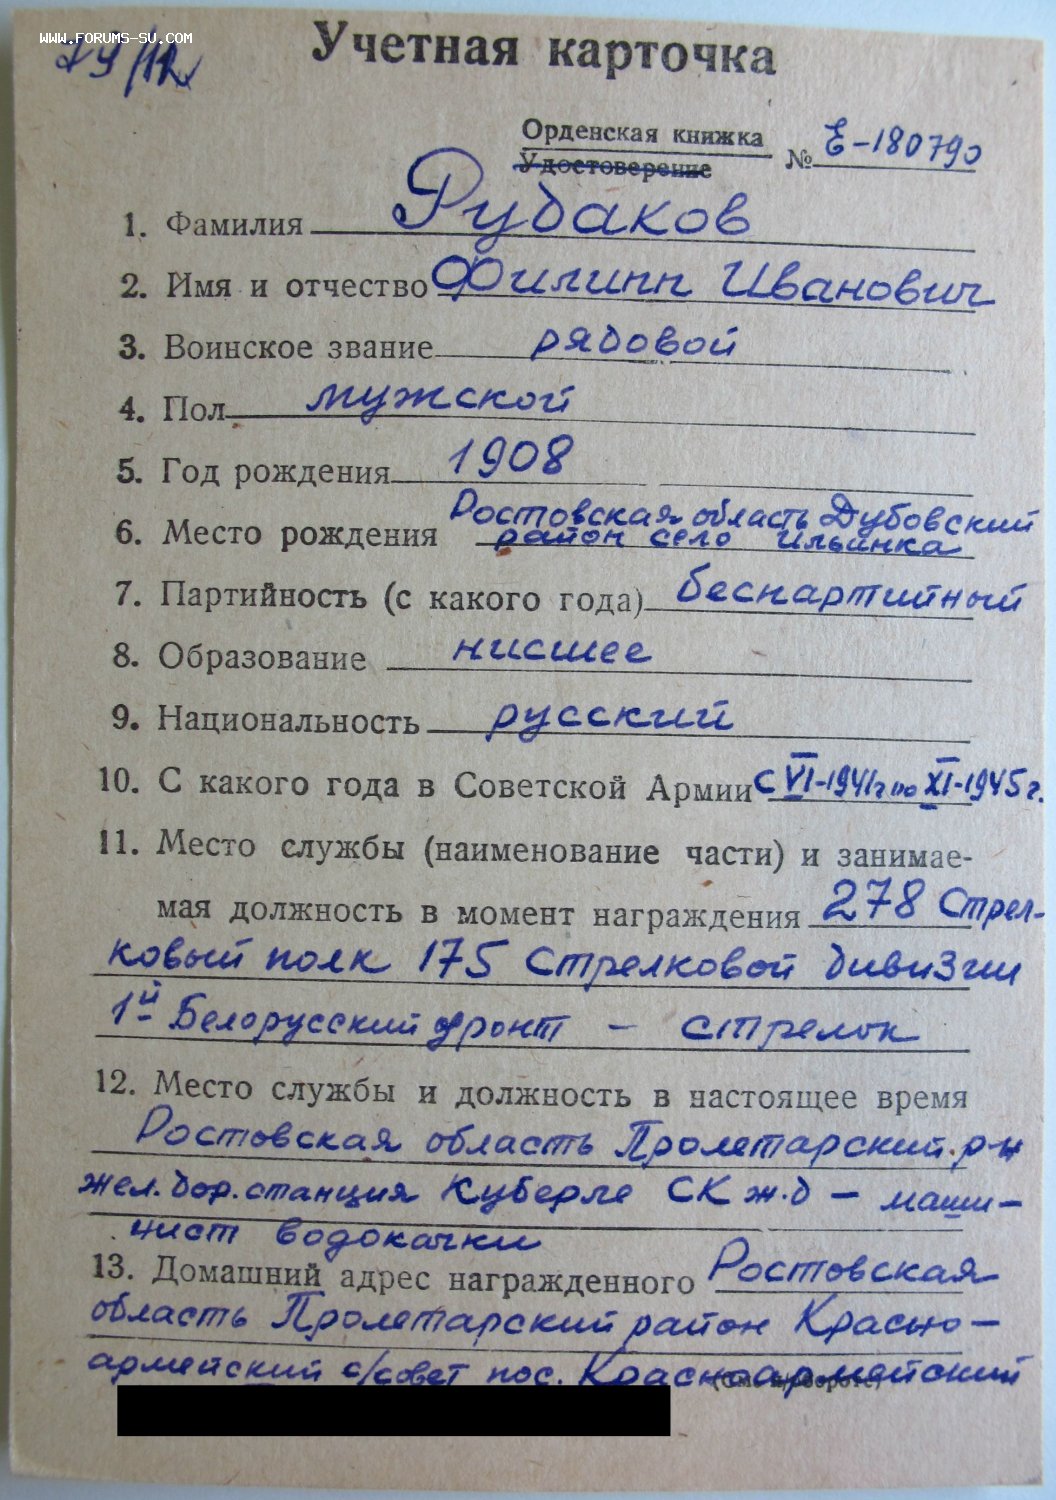 www.forums-su.com
Учетная карточка
Орденская книжка
Удостоверение
№ Е-180790
1. Фамилия Рубаков
2. Имя и отчество Филипп Иванович
3. Воинское звание рядовой
4. Пол мужской
5. Год рождения 1908
6. Место рождения Ростовская область Дубовский
район село Ильинка
7. Партийность (с какого года) беспартийный
8. Образование нисшее
9. Национальность русский
10. С какого года в Советской Армии с VI-1941г по XI-1945г.
11. Место службы (наименование части) и занимае-
мая должность в момент награждения 278 Стрел-
ковый полк 175 Стрелковой дивизии
1й Белорусский фронт – стрелок
12. Место службы и должность в настоящее время
Ростовская область Пролетарский р-н
жел. дор. станция Куберле СК ж.д – маши-
нист водокачки
13. Домашний адрес награжденного Ростовская
область Пролетарский район Красно-
армейский с/совет пос. Красноармейский